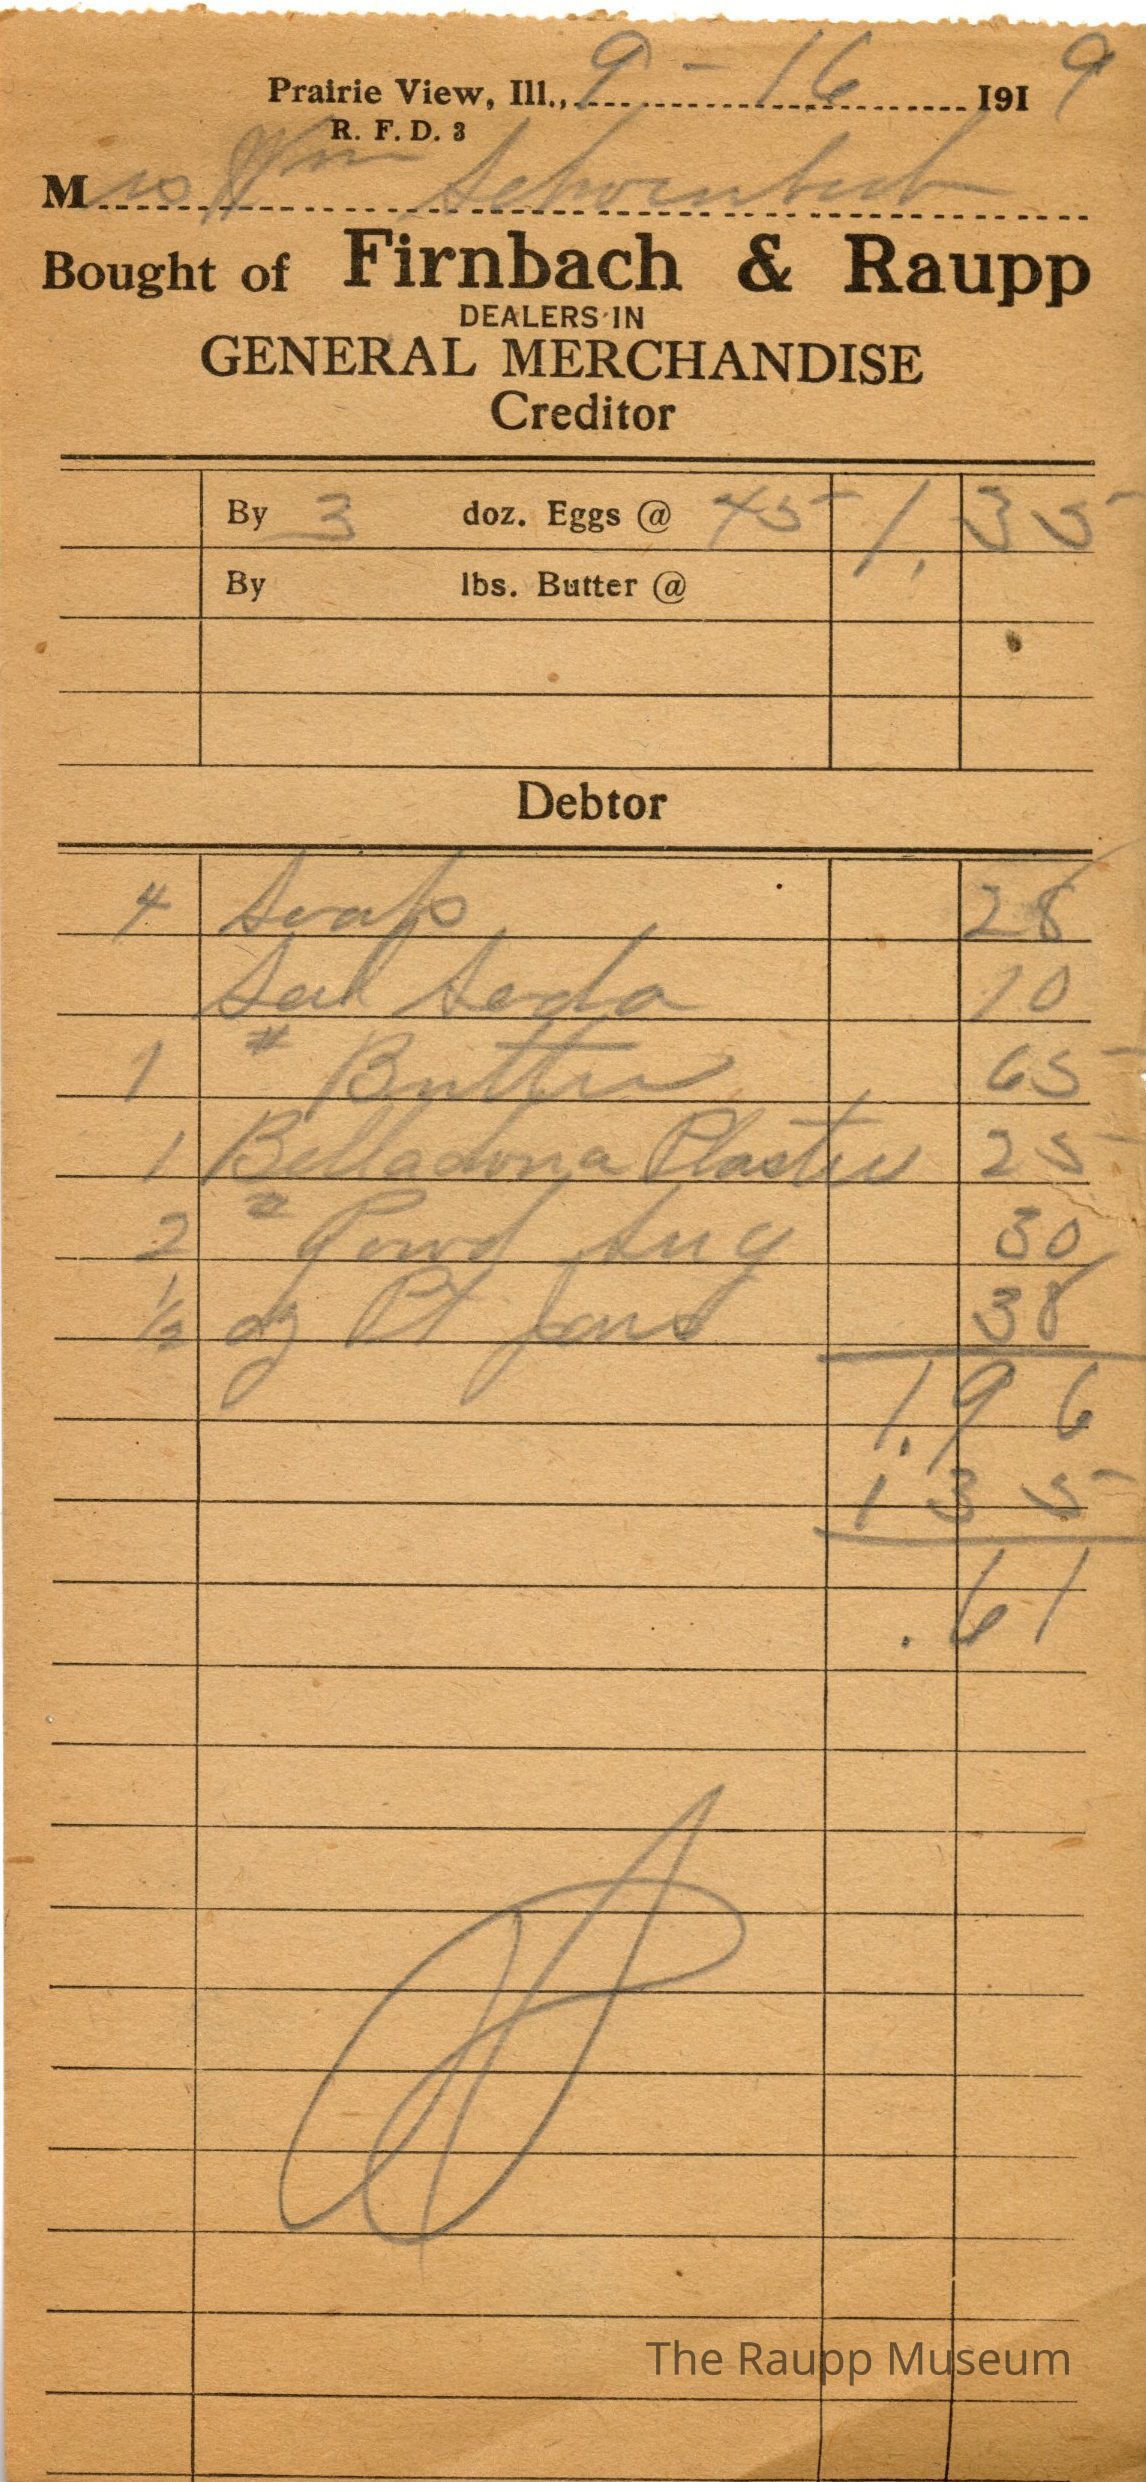 Prairie View, Ill., 9 - 16 1919
R. F. D. 3
Mrs Wm
Bought of Firnbach & Raupp
DEALERS IN
GENERAL MERCHANDISE
Creditor
By 3 doz. Eggs @ 45 1,35
By lbs. Butter @
Debtor
4 Soap 28
Sal Soda 10
1 # Butter 65
1 Belladona Plaster 25
2 # Powd Sug 30
1/2 dz Pt Jars 38
1.96
1 35
.61
The Raupp Museum